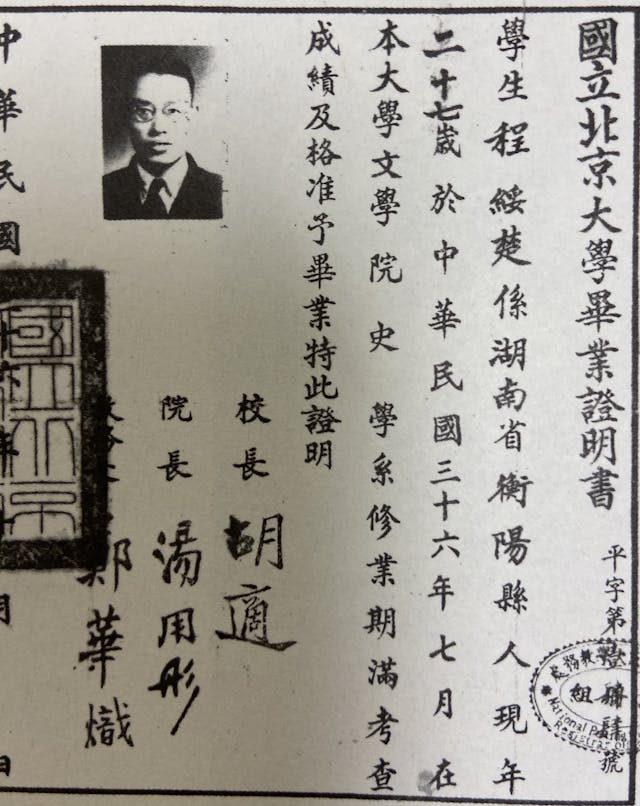 國立北京大學畢業證明書
平字第
號
學生程綏楚係湖南省衡陽縣人現年
二十七歲於中華民國三十六年七月在
本大學文學院史學系修業期滿考查
成績及格准予畢業特此證明
校長 胡適
院長 湯用彤
鄭華熾
中華民國
年
月
日
國立北京
教務處
組
National
Registrar